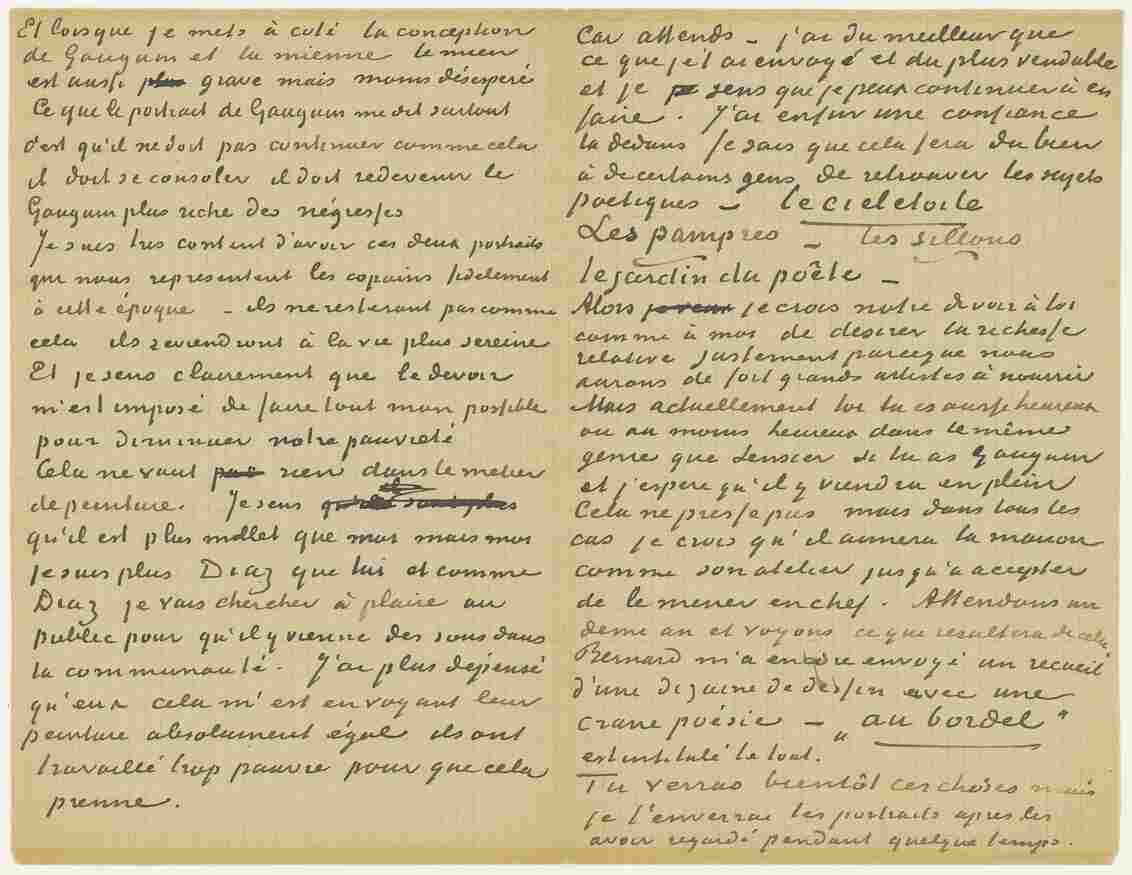 Et lorsque je mets à coté la conception
de Gauguin et la mienne le mien
est aussi grave mais moins désespéré
Ce que le portrait de Gauguin me dit surtout
c'est qu'il ne doit pas continuer comme cela
il doit se consoler il doit redevenir le
Gauguin plus riche des négresses
Je suis très content d'avoir ces deux portraits
qui nous représentent les copains fidèlement
à cette époque – ils ne resteront pas comme
cela ils reviendront à la vie plus sereine
Et je sens clairement que le devoir
m'est imposé de faire tout mon possible
pour diminuer notre pauvreté
Cela ne vaut rien dans le métier
de peinture. Je sens
qu'il est plus millet que moi mais moi
je suis plus Diaz que lui et comme
Diaz je vais chercher à plaire au
public pour qu'il y vienne des sous dans
la communauté. J'ai plus dépensé
qu'eux cela m'est en voyant leur
peinture absolument égal ils ont
travaillé trop pauvre pour que cela
prenne.
Car attends – j'ai du meilleur que
ce que je t'ai envoyé et du plus vendable
et je sens que je peux continuer à en
faire. J'ai enfin une confiance
la dedans je sais que cela fera du bien
à de certains gens de retrouver les sujets
poétiques – le ciel étoilé
Les pampres – les sillons
le jardin du poête –
Alors je crois notre devoir à toi
comme à moi de désirer la richesse
relative justement parceque nous
aurons de fort grands artistes à nourrir
Mais actuellement toi tu es aussi heureux
ou au moins heureux dans le même
genre que Sensier si tu as Gauguin
et j'espère qu'il y viendra en plein
Cela ne presse pas mais dans tous les
cas je crois qu'il aimera la maison
comme son atelier jusqu'a accepter
de le mener en chef. Attendons un
demi an et voyons ce que resultera de cela
Bernard m'a encore envoyé un recueil
d'une dizaine de dessin avec une
crane poésie – „au bordel”
est intitulé le tout.
Tu verras bientôt ces choses mais
je t'enverrai les portraits après les
avoir regardé pendant quelque temps.